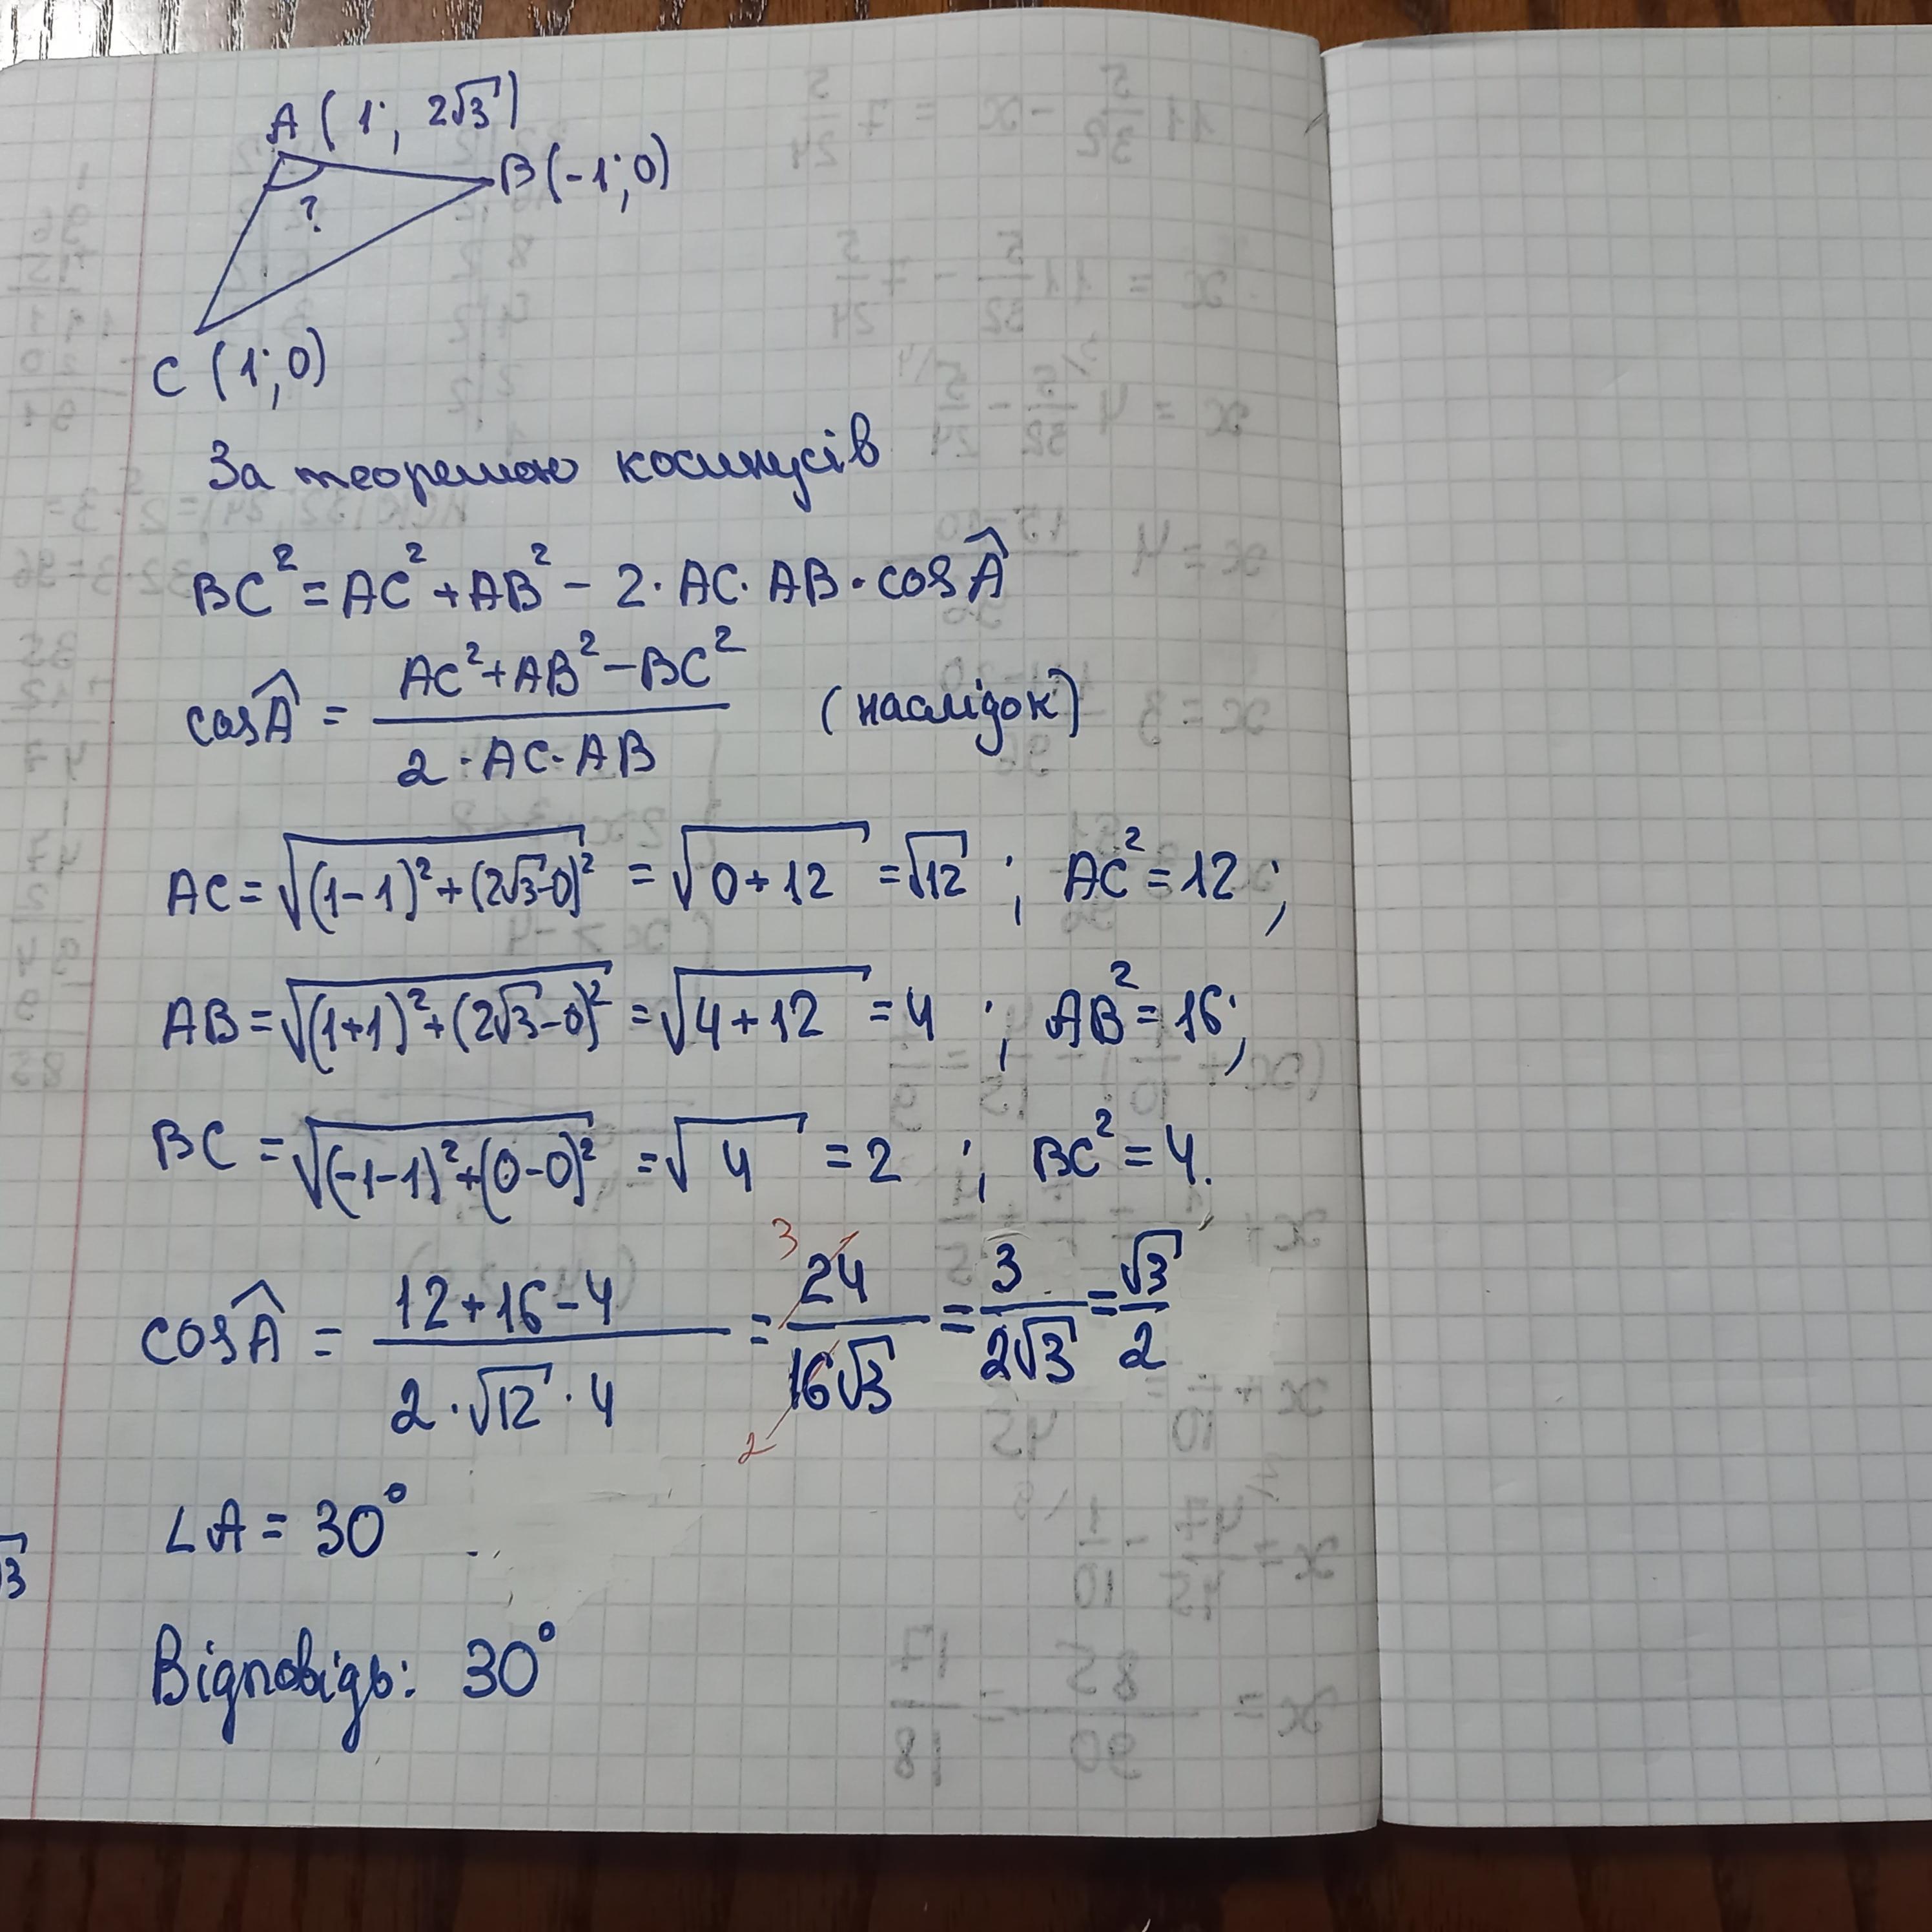 A (1; 2√3)
B (-1; 0)
?
C (1; 0)
За теоремою косинусів
BC² = AC² + AB² - 2·AC·AB·cos Â
cos Â = (AC² + AB² - BC²) / (2·AC·AB) (наслідок)
AC = √((1-1)² + (2√3-0)²) = √(0+12) = √12 ; AC² = 12 ;
AB = √((1+1)² + (2√3-0)²) = √(4+12) = 4 ; AB² = 16 ;
BC = √((-1-1)² + (0-0)²) = √4 = 2 ; BC² = 4.
3
cos Â = (12+16-4) / (2·√12·4) = 24 / (16√3) = 3 / (2√3) = √3 / 2
2
∠A = 30°
Відповідь: 30°